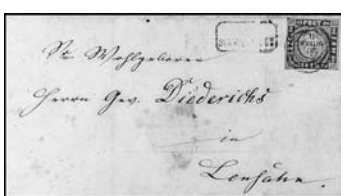 POST
Sr. Wohlgeboren
Herrn Gev. Diederichs
in
Lensahn.